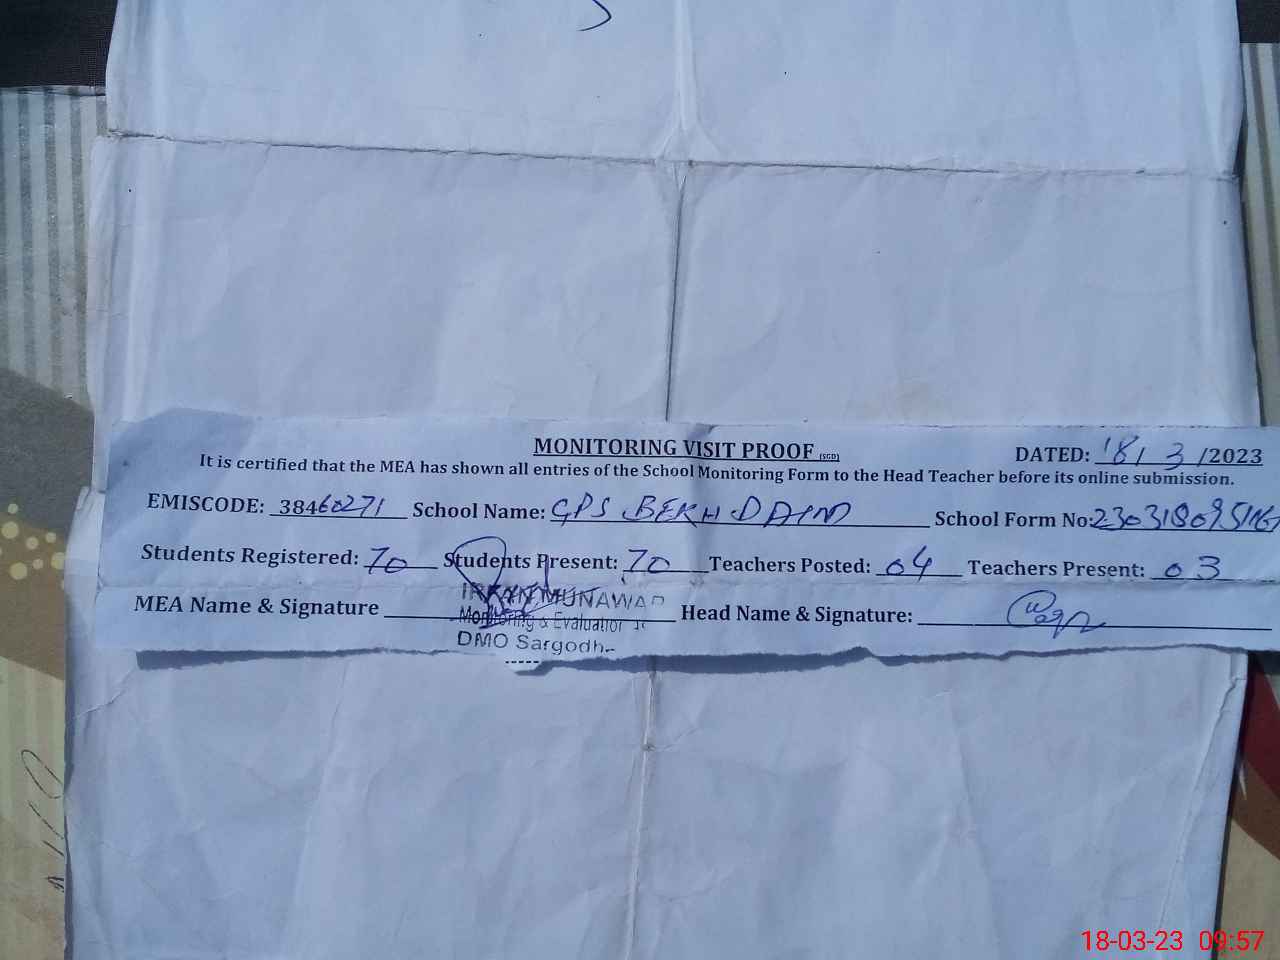 MONITORING VISIT PROOF (SGD)
DATED: 18/3/2023
It is certified that the MEA has shown all entries of the School Monitoring Form to the Head Teacher before its online submission.
EMISCODE: 38460271 School Name: GPS BEKH DAIM School Form No:
Students Registered: 70 Students Present: 70 Teachers Posted: 04 Teachers Present: 03
MEA Name & Signature Head Name & Signature:
MUNAWAR
Monitoring & Evaluation
DMO Sargodh
18-03-23 09:57